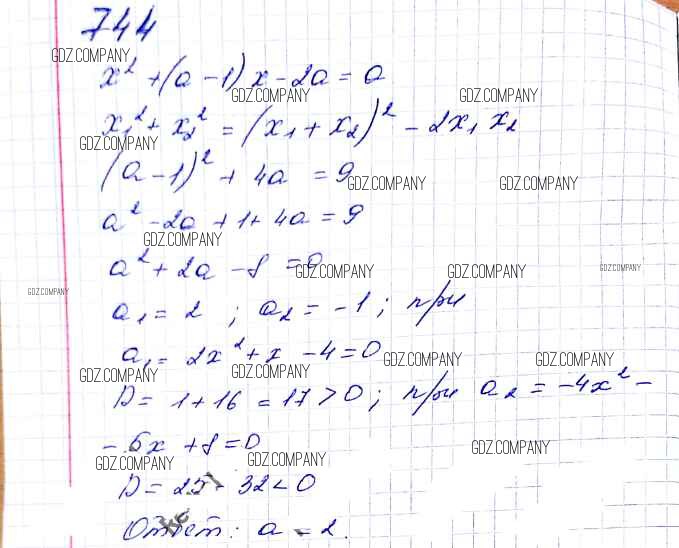 744
GDZ.COMPANY
x² + (a - 1) x - 2a = 0
GDZ.COMPANY GDZ.COMPANY
x₁² + x₂² = (x₁ + x₂)² - 2x₁ x₂
GDZ.COMPANY
(a - 1)² + 4a = 9
GDZ.COMPANY GDZ.COMPANY
a² - 2a + 1 + 4a = 9
GDZ.COMPANY
a² + 2a - 8 = 0
GDZ.COMPANY GDZ.COMPANY GDZ.COMPANY
GDZ.COMPANY
a₁ = 2 ; a₂ = -1 ; при
a₁ = 2x² + x - 4 = 0
GDZ.COMPANY GDZ.COMPANY
GDZ.COMPANY GDZ.COMPANY
D = 1 + 16 = 17 > 0 ; при a₂ = -4x² -
- 5x + 8 = 0
GDZ.COMPANY GDZ.COMPANY GDZ.COMPANY
D = 25 - 32 < 0
Ответ: a = 2.